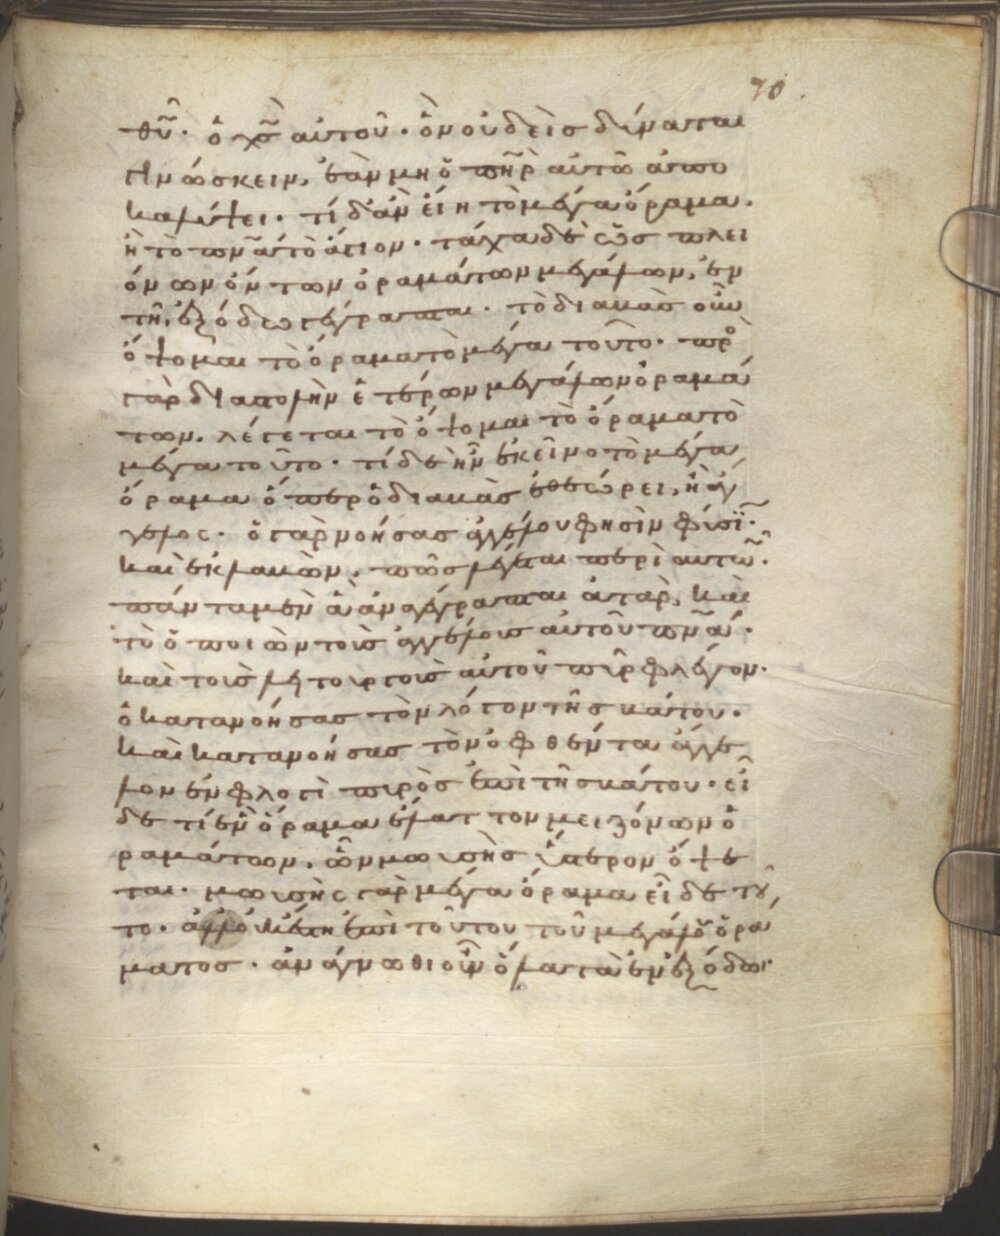 70
θῦ· ὁ χς̄ αὐτοῦ· ὃν οὐδεὶς δύναται
γινώσκειν, ἐὰν μὴ ὁ πη̄ρ αὐτῶ ἀπο
καλύψει· τί δ' ἂν εἴη τὸ μέγα ὅραμα.
ἢ τὸ πνᾱ τὸ ἅγιον· τάχα δὲ ὡς πλει
όνων ὄντων ὁραμάτων μεγάλων, ἐν
τῆ ἐξόδω γέγραπται· τὸ διαβὰς οὖν
ὄψομαι τὸ ὅραμα τὸ μέγα τοῦτο· πρὸ
γὰρ διαπολὴν ἑτέρων μεγάλων ὁραμά
των, λέγεται τὸ ὄψομαι τὸ ὅραμα τὸ
μέγα τοῦτο· τί δὲ ἦν ἐκεῖνο τὸ μέγα
ὅραμα ὅπερ ὁ διαβὰς ἐθεώρει, ἢ ἄγ
γελος· ὁ γὰρ νοήσας ἀγγέλου φησὶν φύσιν·
καὶ ἐκλαβὼν, πῶς λέγεται περὶ αὐτῶν·
πάντα μὲν ἃ ἀναγέγραπται ἀτὰρ, καὶ
τὸ ὁ ποιῶν τοὺς ἀγγέλους αὐτοῦ πνᾱ·
καὶ τοὺς λειτουργοὺς αὐτοῦ πῦρ φλέγον·
ὁ κατανοήσας τὸν λόγον τῆς βάτου·
καὶ κατανοήσας τὸν ὀφθέντα ἄγγε
λον ἐν φλογὶ πυρὸς ἐπὶ τῆς βάτου· εἶ
δέ τι ἓν ὅραμα ἔλαττον μειζόνων ὁ
ραμάτων, ὧν μωυσῆς ὕστερον ὄψε
ται· μωυσῆς γὰρ μέγα ὅραμα εἶδε τοῦ
το· ἀλλ' οὐκ ἔστη ἐπὶ τούτου τοῦ μεγάλου ὁρά
ματος· ἀνάγνωθι οὖν ὅλα τὰ ἐν ἐξόδω·